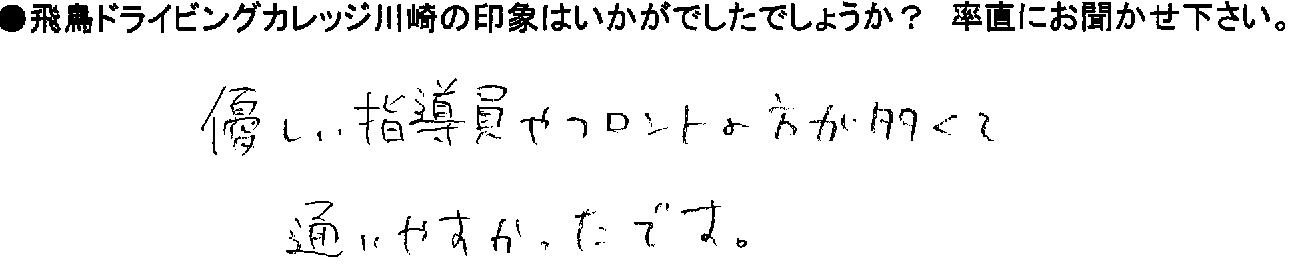 ●飛鳥ドライビングカレッジ川崎の印象はいかがでしたでしょうか？　率直にお聞かせ下さい。
優しい指導員やフロントの方が多くて
通いやすかったです。